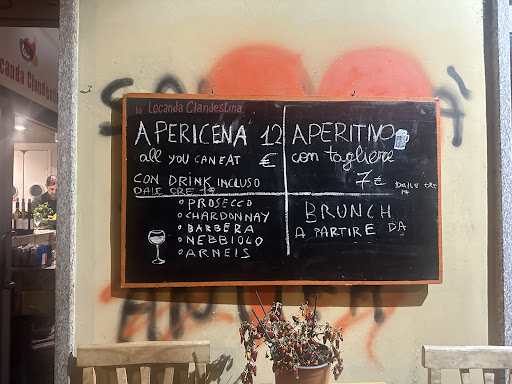 la Locanda Clandestina
APERICENA 12
all you CAN EAT €
CON DRINK INCLUSO
DALLE ORE
APERITIVO
con tagliere
7€ DALLE ORE
• PROSECCO
• CHARDONNAY
• BARBERA
• NEBBIOLO
• ARNEIS
BRUNCH
A PARTIRE DA
canda Clandesti